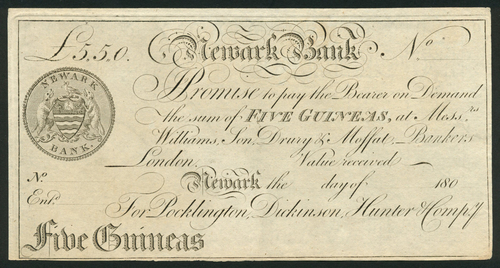 £5,,5,,0. Newark Bank. No.
NEWARK BANK.
I Promise to pay the Bearer on Demand
the sum of FIVE GUINEAS, at Messrs
Williams, Son, Drury & Moffat, Bankers
London. Value received
No Newark the day of 180
Entd. For Pocklington, Dickinson, Hunter & Compy.
Five Guineas